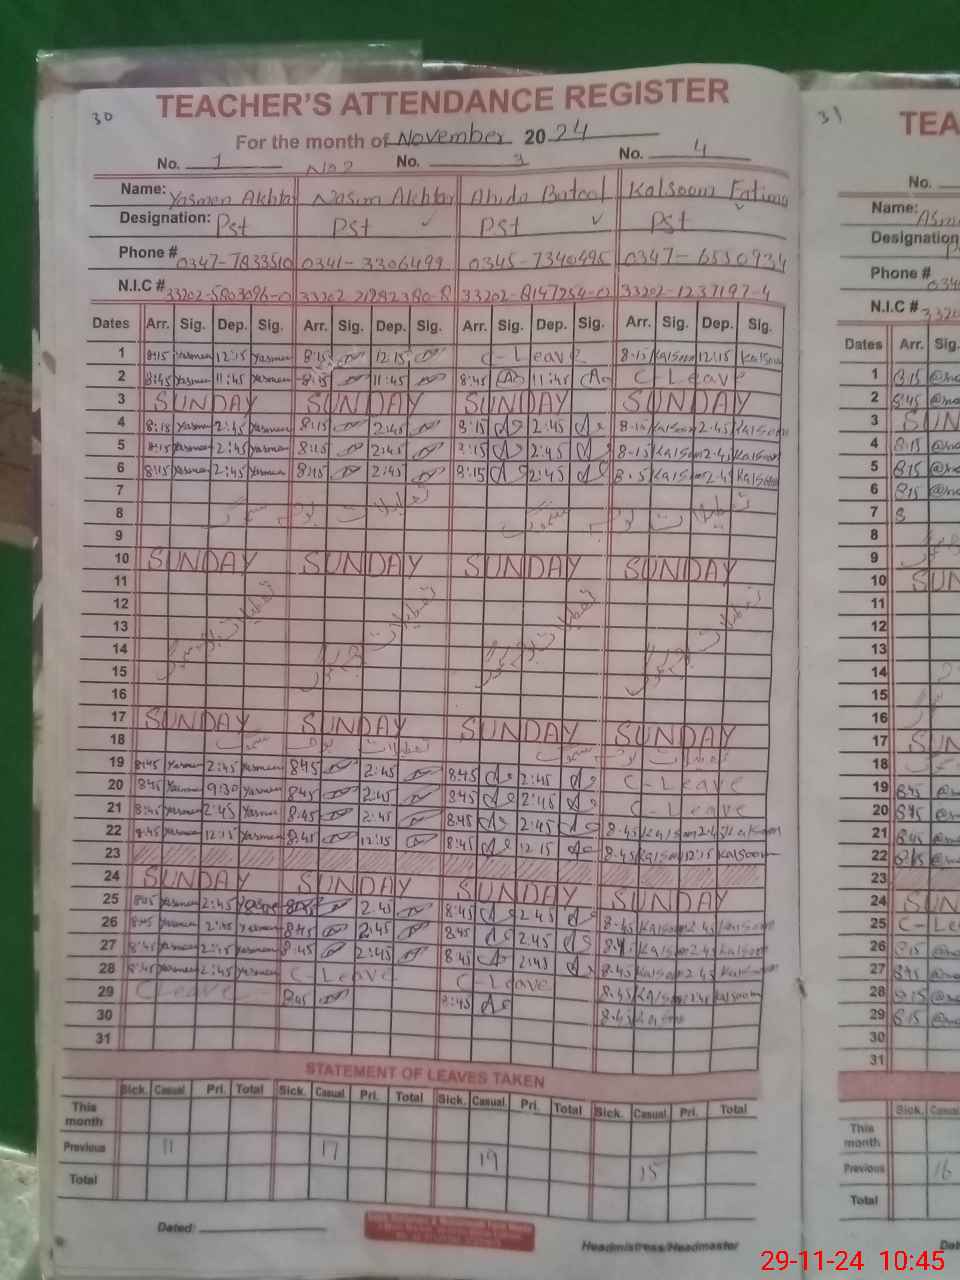 30
TEACHER'S ATTENDANCE REGISTER
For the month of November 2024
No. 1 No 2 No. 3 No. 4
Name: Yasmen Akhtar Nasim Akhtar Batool Kalsoom Fatima
Designation: Pst Pst Pst Pst
Phone # 0347-7833510 0341-3306499 0345-7340495 0347-6550934
N.I.C # 33202-5803096-0 33202-21282380-8 33202-8147254-0 33202-1237197-4
Dates Arr. Sig. Dep. Sig. Arr. Sig. Dep. Sig. Arr. Sig. Dep. Sig. Arr. Sig. Dep. Sig.
1 8:15 Yasmen 12:15 Yasmen 8:15 12:15 C-Leave 8.15 Kalsoom 12:15 Kalsoom
2 8:45 Yasmen 11:45 Yasmen 8:15 11:45 8:45 11:45 C-Leave
3 SUNDAY SUNDAY SUNDAY SUNDAY
4 8:15 Yasmen 2:45 Yasmen 8:15 2:45 8:15 2:45 8.15 Kalsoom 2.45 Kalsoom
5 8:15 Yasmen 2:45 Yasmen 8:15 2:45 8:15 2:45 8.15 Kalsoom 2.45 Kalsoom
6 8:15 Yasmen 2:45 Yasmen 8:15 2:45 8:15 2:45 8.5 Kalsoom 2.45 Kalsoom
7
8 تعطیلات بوجہ سموگ تعطیلات بوجہ سموگ
9
10 SUNDAY SUNDAY SUNDAY SUNDAY
11
12
13 تعطیلات بوجہ سموگ تعطیلات بوجہ سموگ تعطیلات بوجہ سموگ تعطیلات بوجہ سموگ
14
15
16
17 SUNDAY SUNDAY SUNDAY SUNDAY
18 تعطیلات بوجہ سموگ تعطیلات بوجہ سموگ
19 8:45 Yasmen 2:45 Yasmen 8:45 2:45 8:45 2:45 C-Leave
20 8:45 Yasmen 9:30 Yasmen 8:45 2:45 8:45 2:45 C-Leave
21 8:45 Yasmen 2:45 Yasmen 8:45 2:45 8:45 2:45 8.45 Kalsoom 2.45 Kalsoom
22 8:45 Yasmen 12:15 Yasmen 8:45 12:15 8:45 12 15 8.45 Kalsoom 12:15 Kalsoom
23
24 SUNDAY SUNDAY SUNDAY SUNDAY
25 8:45 Yasmen 2:45 Yasmen 2:45 8:45 2:45 8.45 Kalsoom 2.45 Kalsoom
26 8:45 Yasmen 2:45 Yasmen 8:45 2:45 8:45 2:45 Kalsoom 2.45 Kalsoom
27 8:45 Yasmen 2:45 Yasmen 8:45 2:45 8:45 2:45 8.45 Kalsoom 2.45 Kalsoom
28 8:45 Yasmen 2:45 Yasmen C-Leave C-Leave 8.45 Kalsoom 2.45 Kalsoom
29 C Leave 8:45 8:45 8.45 Kalsoom
30
31
STATEMENT OF LEAVES TAKEN
Sick. Casual Pri. Total Sick. Casual. Pri. Total Sick. Casual. Pri. Total Sick. Casual. Pri. Total
This month
Previous 11 17 19 15
Total
Dated:
Headmistress/Headmaster
31
TEA
No.
Name:
Designation
Phone #
N.I.C #
Dates Arr. Sig.
1 8:15
2 8:45
3 SUN
4 8:15
5 8:15
6 8:15
7 8
8
9
10 SUN
11
12
13
14
15
16
17 SUN
18
19 8:45
20 8:45
21 8:45
22
23
24 SUN
25 C-Le
26 8:15
27 8:45
28 8:15
29 8:15
30
31
Sick. Casual
This month
Previous 16
Total
Dat
29-11-24 10:45